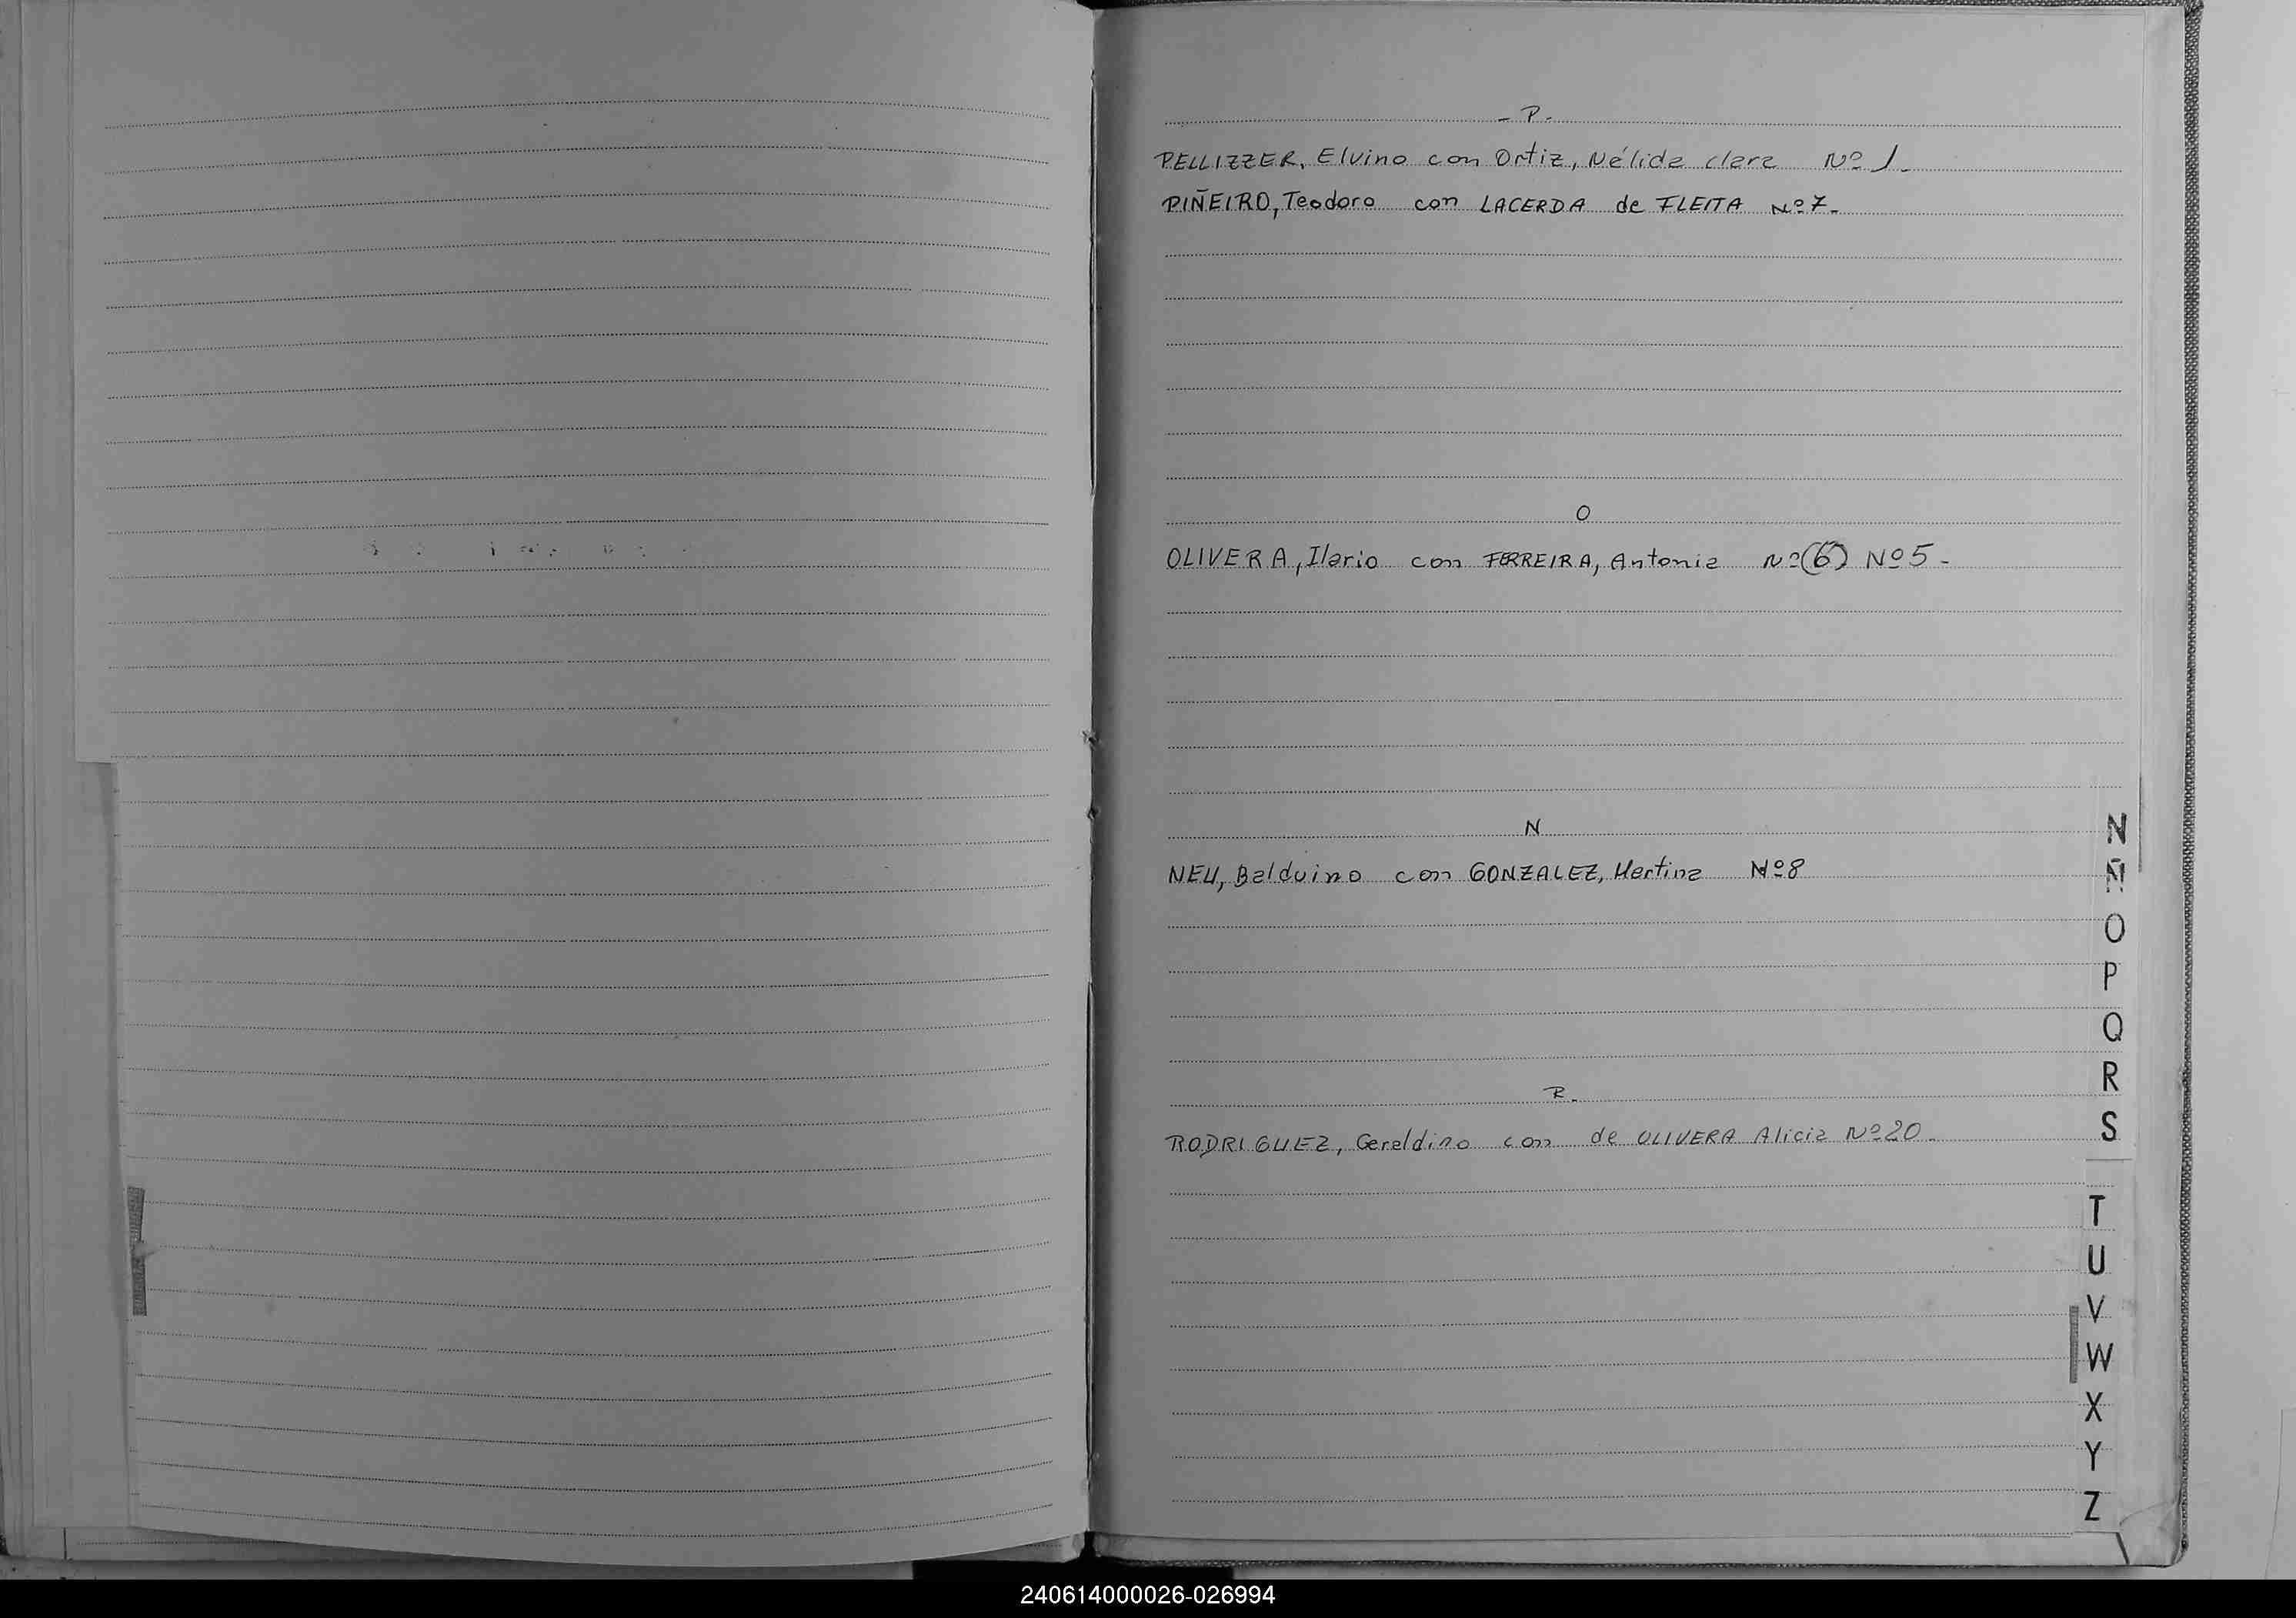 - P -
PELLIZZER, Elvino con Ortiz, Nélida clara Nº 1.
PIÑEIRO, Teodoro con LACERDA de FLEITA Nº 7.-
O
OLIVERA, Ilario con FERREIRA, Antonia Nº (6) Nº 5 -
N
NEU, Balduino con GONZALEZ, Martina Nº 8
R.
RODRIGUEZ, Geraldino con de OLIVERA Alicia Nº 20.-
N
Ñ
O
P
Q
R
S
T
U
V
W
X
Y
Z
240614000026-026994